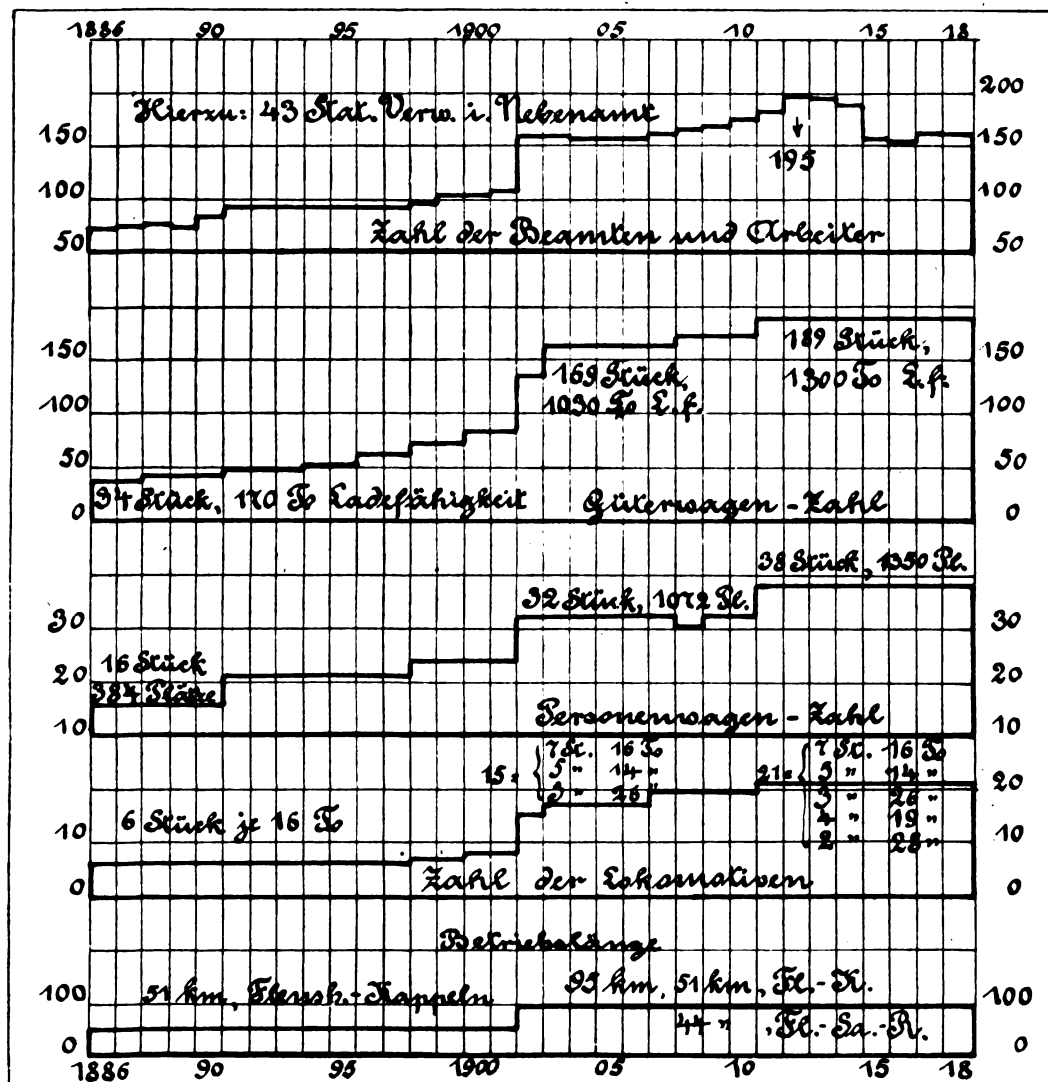 1886 90 95 1900 05 10 15 18
200
Hierzu: 43 Stat. Verw. i. Nebenamt
150 150
195
100 100
Zahl der Beamten und Arbeiter
50 50
189 Stück,
150 150
169 Stück, 1300 To L.f.
1030 To L.f.
100 100
50 50
34 Stück, 170 To Ladefähigkeit Güterwagen-Zahl
0 0
38 Stück, 1350 Pl.
32 Stück, 1072 Pl.
30 30
16 Stück
20 20
384 Plätze
10 10
Personenwagen-Zahl
7 St. 16 To 7 St. 16 To
15 = 5 " 14 " 21 = 5 " 14 "
3 " 26 " 3 " 26 "
20
6 Stück je 16 To 4 " 19 "
10 2 " 28 " 10
Zahl der Lokomotiven
0 0
Betriebslänge
51 km, Flensb.-Kappeln 95 km, 51 km, Fl.-K.
100 100
44 " , Fl.-Sa.-R.
0 0
1886 90 95 1900 05 10 15 18